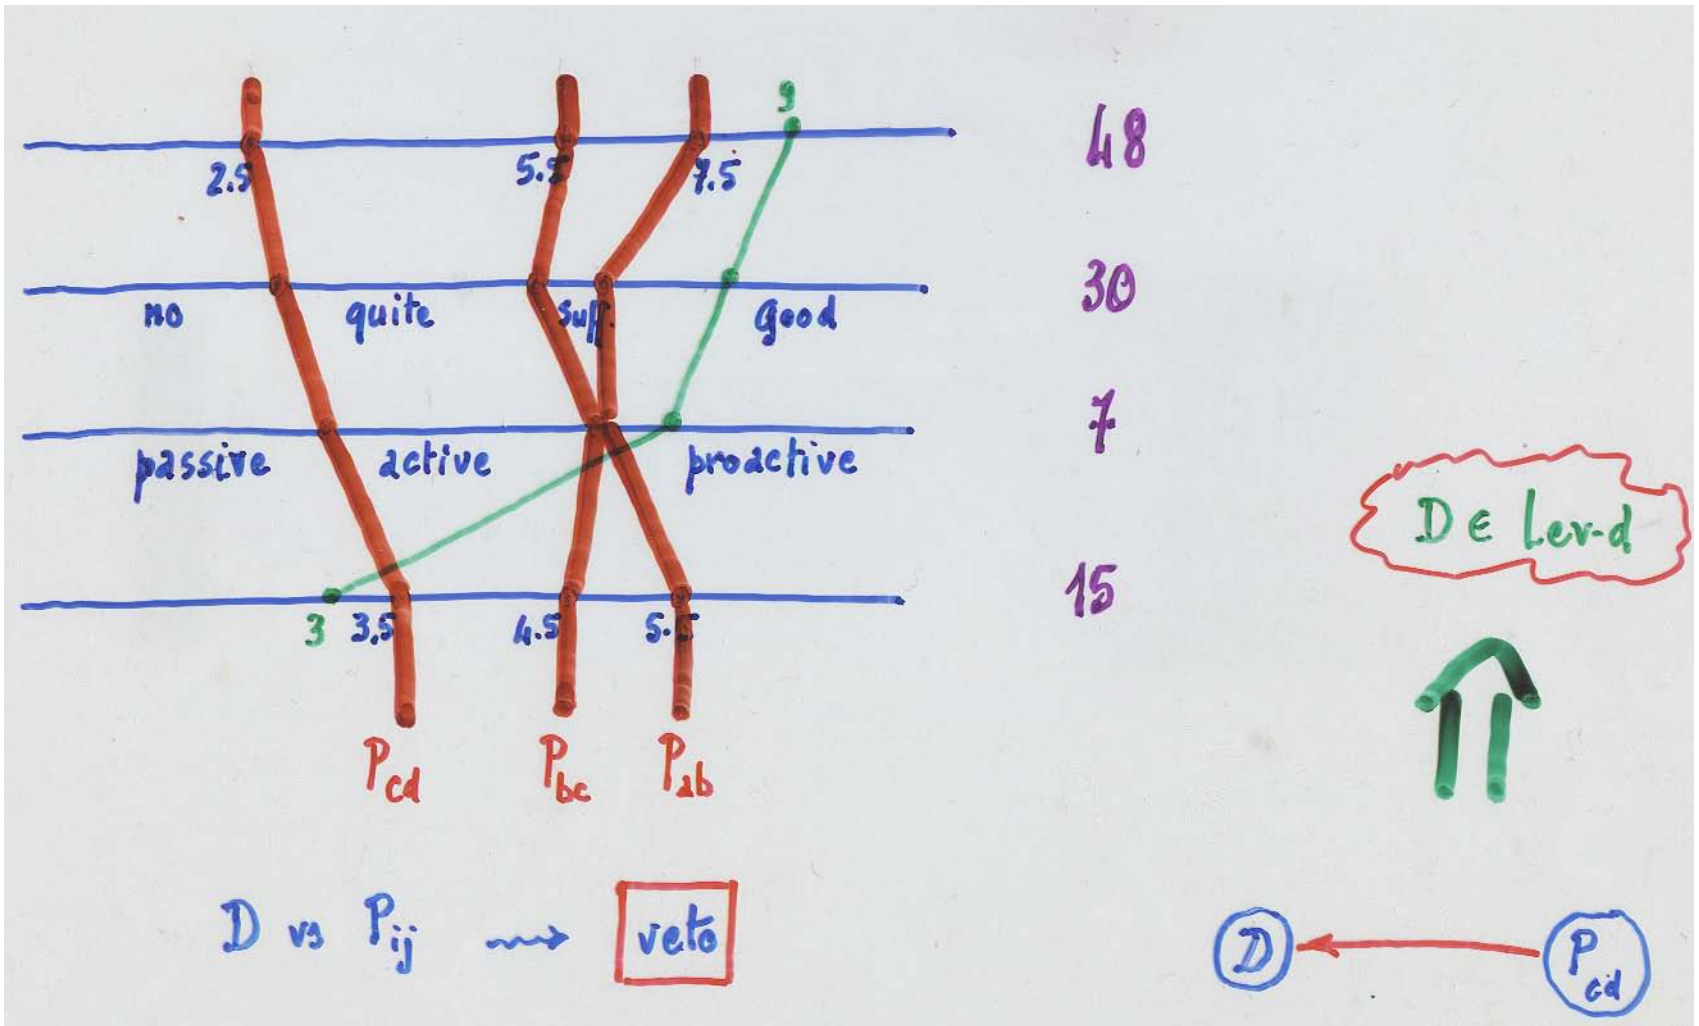 9
2.5 5.5 7.5 48
no quite suf. good 30
passive active proactive 7
3 3.5 4.5 5.5 15
D ∈ Lev-d
Pcd Pbc Pab
D vs Pij veto
D Pcd